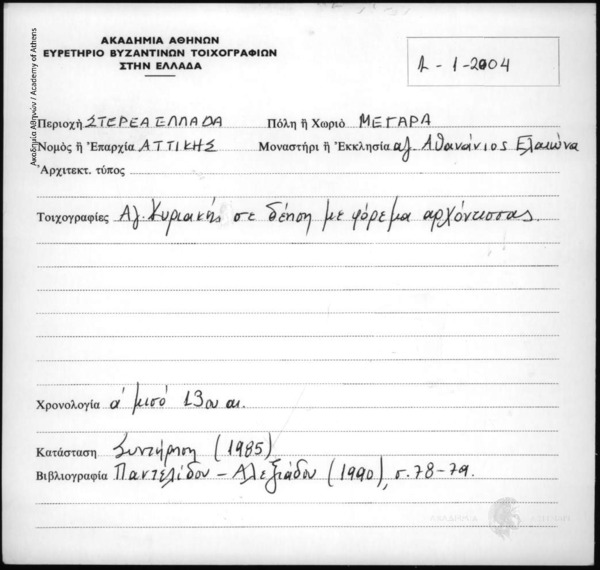 ΑΚΑΔΗΜΙΑ ΑΘΗΝΩΝ
ΕΥΡΕΤΗΡΙΟ ΒΥΖΑΝΤΙΝΩΝ ΤΟΙΧΟΓΡΑΦΙΩΝ
ΣΤΗΝ ΕΛΛΑΔΑ
1-1-2004
Ακαδημία Αθηνών / Academy of Athens
Περιοχὴ ΣΤΕΡΕΑ ΕΛΛΑΔΑ Πόλη ἢ Χωριὸ ΜΕΓΑΡΑ
Νομὸς ἢ Ἐπαρχία ΑΤΤΙΚΗΣ Μοναστήρι ἢ Ἐκκλησία αγ. Αθανάσιος Ελαιώνα
Ἀρχιτεκτ. τύπος
Τοιχογραφίες Αγ. Κυριακής σε δέηση με φόρεμα αρχόντισσας.
Χρονολογία α' μισό 13ου αι.
Κατάσταση Συντήρηση (1985)
Βιβλιογραφία Παντελίδου - Αλεξιάδου (1990), σ. 78-79.
ΑΚΑΔΗΜΙΑ ΑΘΗΝΩΝ